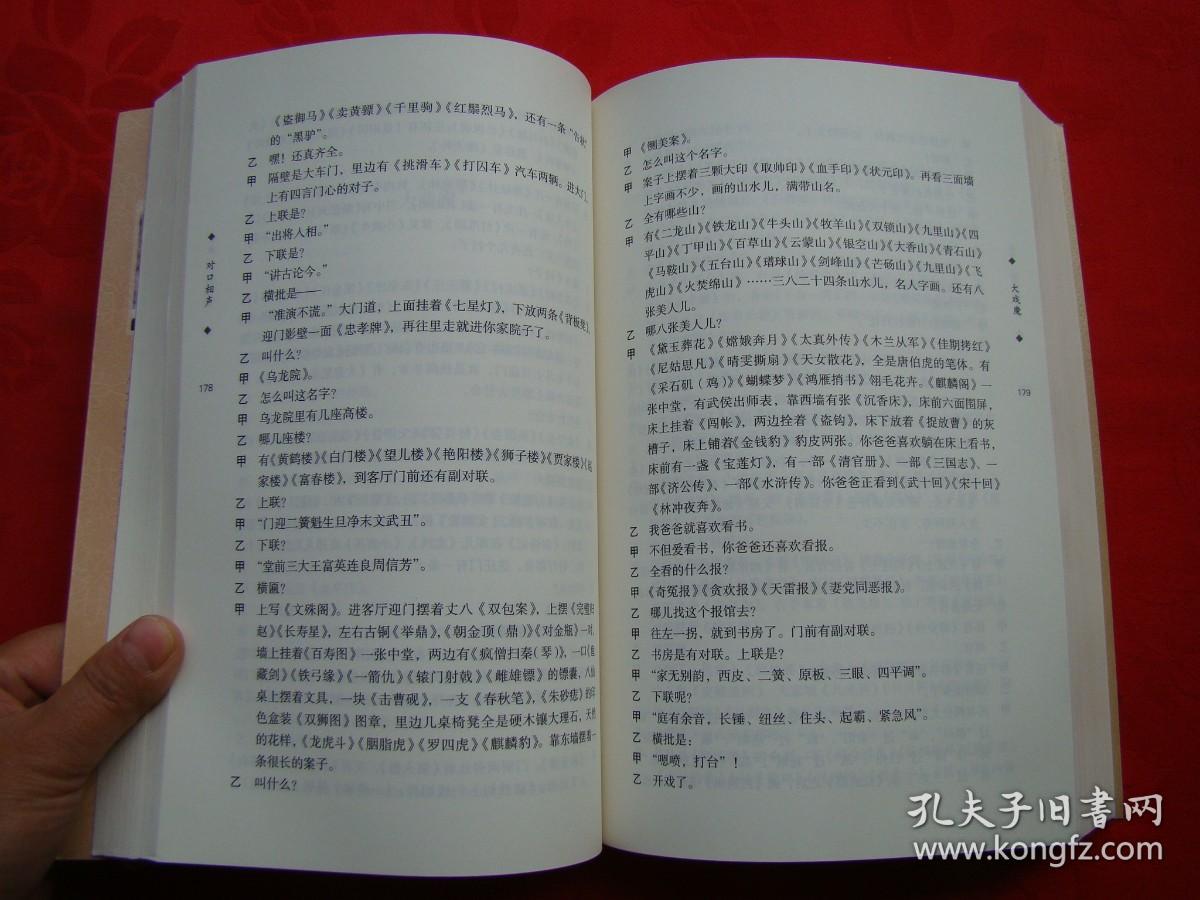 《盗御马》《卖黄骠》《千里驹》《红鬃烈马》，还有一条
的“黑驴”。
乙 嘿！还真齐全。
甲 隔壁是大车门，里边有《挑滑车》《打囚车》汽车两辆。进大门，
上有四言门心的对子。
乙 上联是？
甲 “出将人相。”
乙 下联是？
甲 “讲古论今。”
乙 横批是——
甲 “准演不谎。”大门道，上面挂着《七星灯》，下放两条《背板凳》，
迎门影壁一面《忠孝牌》，再往里走就进你家院子了。
乙 叫什么？
甲 《乌龙院》。
乙 怎么叫这名字？
甲 乌龙院里有几座高楼。
乙 哪几座楼？
甲 有《黄鹤楼》《白门楼》《望儿楼》《艳阳楼》《狮子楼》《贾家楼》
家楼》《富春楼》，到客厅门前还有副对联。
乙 上联？
甲 “门迎二簧魁生旦净末文武丑”。
乙 下联？
甲 “堂前三大王富英连良周信芳”。
乙 横匾？
甲 上写《文殊阁》。进客厅迎门摆着丈八《双包案》，上摆《完璧归
赵》《长寿星》，左右古铜《举鼎》，《朝金顶（鼎）》《对金瓶》一对，
墙上挂着《百寿图》一张中堂，两边有《疯僧扫秦（琴）》，一口《鱼
藏剑》《铁弓缘》《一箭仇》《辕门射戟》《雌雄镖》的镖囊，八仙
桌上摆着文具，一块《击曹砚》，一支《春秋笔》，《朱砂痣》的印
色盒装《双狮图》图章，里边几桌椅凳全是硬木镶大理石，天然
的花样，《龙虎斗》《胭脂虎》《罗四虎》《麒麟豹》。靠东墙摆着一
条很长的案子。
乙 叫什么？
◆
对口相声
◆
178
甲 《铡美案》。
乙 怎么叫这个名字。
甲 案子上摆着三颗大印《取帅印》《血手印》《状元印》。再看三面墙
上字画不少，画的山水儿，满带山名。
乙 全有哪些山？
甲 有《二龙山》《铁龙山》《牛头山》《牧羊山》《双锁山》《九里山》《四
平山》《丁甲山》《百草山》《云蒙山》《银空山》《大香山》《青石山》
《马鞍山》《五台山》《瑨球山》《剑峰山》《芒砀山》《九里山》《飞
虎山》《火焚绵山》……三八二十四条山水儿，名人字画。还有八
张美人儿。
乙 哪八张美人儿？
甲 《黛玉葬花》《嫦娥奔月》《太真外传》《木兰从军》《佳期拷红》
《尼姑思凡》《晴雯撕扇》《天女散花》，全是唐伯虎的笔体。有
《采石矶（鸡）》《蝴蝶梦》《鸿雁捎书》翎毛花卉。《麒麟阁》一
张中堂，有武侯出师表，靠西墙有张《沉香床》，床前六面围屏，
床上挂着《闯帐》，两边拴着《盗钩》，床下放着《捉放曹》的灰
槽子，床上铺着《金钱豹》豹皮两张。你爸爸喜欢躺在床上看书，
床前有一盏《宝莲灯》，有一部《清官册》、一部《三国志》、一
部《济公传》、一部《水浒传》。你爸爸正看到《武十回》《宋十回》
《林冲夜奔》。
乙 我爸爸就喜欢看书。
甲 不但爱看书，你爸爸还喜欢看报。
乙 全看的什么报？
甲 《奇冤报》《贪欢报》《天雷报》《妻党同恶报》。
乙 哪儿找这个报馆去？
甲 往左一拐，就到书房了。门前有副对联。
乙 书房是有对联。上联是？
甲 “家无别韵，西皮、二簧、原板、三眼、四平调”。
乙 下联呢？
甲 “庭有余音，长锤、纽丝、住头、起霸、紧急风”。
乙 横批是：
甲 “嗯喷，打台”！
乙 开戏了。
◆
大戏魔
◆
179
孔夫子旧书网
www.kongfz.com